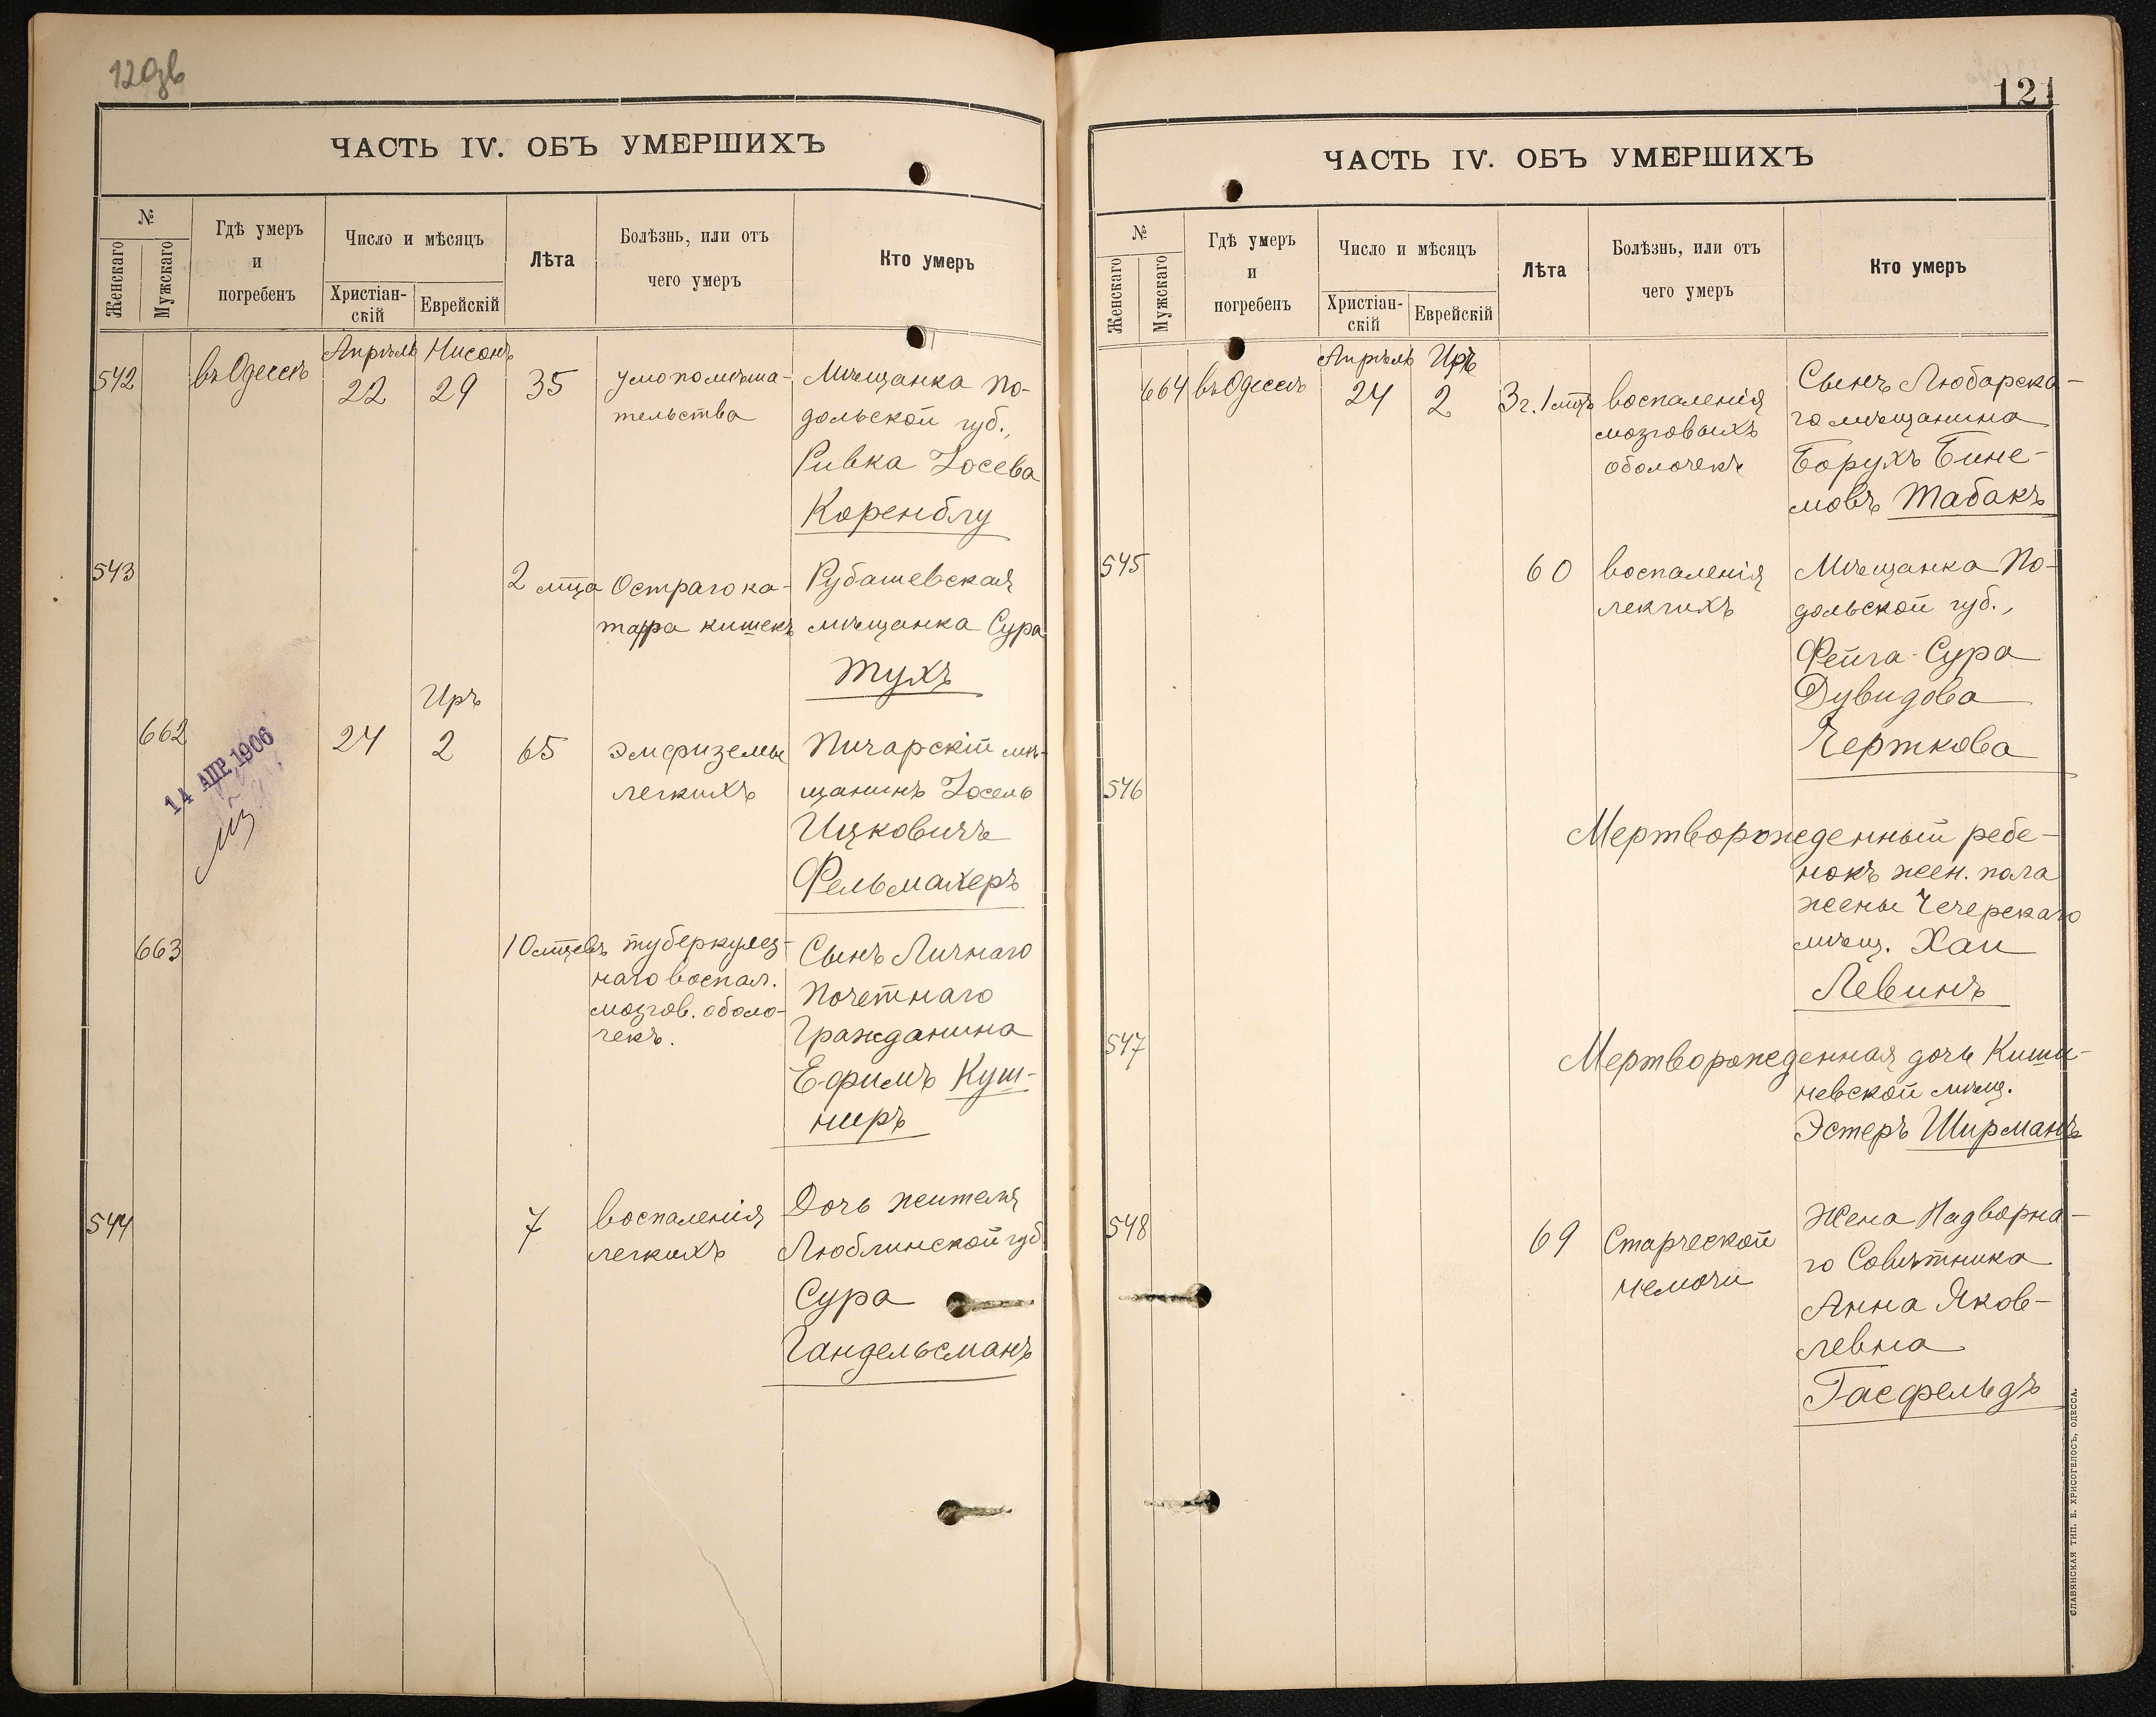 120зв
ЧАСТЬ IV. ОБЪ УМЕРШИХЪ
№
Женскаго
Мужскаго
Гдѣ умеръ
и
погребенъ
Число и мѣсяцъ
Христіан-
скій
Еврейскій
Лѣта
Болѣзнь, или отъ
чего умеръ
Кто умеръ
Апрѣль Нисонъ
542 въ Одессѣ 22 29 35 умопомѣша- Мѣщанка По-
тельства дольской губ.,
Ривка Іосева
Коренблу
543 2 мца Остраго ка- Рубашевская
тарра кишекъ мѣщанка Сура
Тухъ
Иръ
662 24 2 65 эмфиземы Пичарскій мѣ-
легкихъ щанинъ Іосель
Ицковичъ
Фельмахеръ
14 АПР. 1906
663 10 мцевъ туберкулез- Сынъ Личнаго
наго воспал. Почетнаго
мозгов. оболо- Гражданина
чекъ. Ефимъ Куш-
ниръ
544 7 воспаленія Дочь жителя
легкихъ Люблинской губ.
Сура
Гандельсманъ
121
ЧАСТЬ IV. ОБЪ УМЕРШИХЪ
№
Женскаго
Мужскаго
Гдѣ умеръ
и
погребенъ
Число и мѣсяцъ
Христіан-
скій
Еврейскій
Лѣта
Болѣзнь, или отъ
чего умеръ
Кто умеръ
Апрѣль Иръ
664 въ Одессѣ 24 2 3 г. 1 мцъ воспаленія Сынъ Любарска-
мозговыхъ го мѣщанина
оболочекъ Борухъ Бине-
мовъ Табакъ
545 60 воспаленія Мѣщанка По-
легкихъ дольской губ.,
Фейга-Сура
Дувидова
Черткова
546
Мертворожденный ребе-
нокъ жен. пола
жены Чечерскаго
мѣщ. Хаи
Левинъ
547 Мертворожденная дочь Киши-
невской мѣщ.
Эстеръ Ширманъ
548 69 Старческой Жена Надворна-
немочи го Совѣтника
Анна Яков-
левна
Гасфельдъ
СЛАВЯНСКАЯ ТИП. Е. ХРИСОГЕЛОСЪ, ОДЕССА.